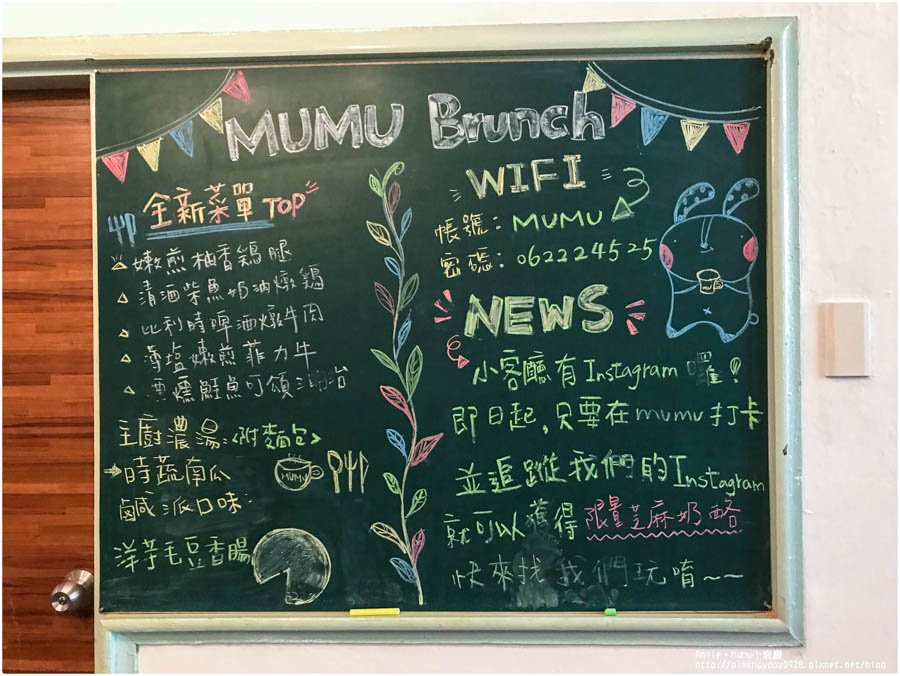 MUMU Brunch
全新菜單 TOP
嫩煎柚香鷄腿
清酒柴魚奶油燉鷄
比利時啤酒燉牛肉
薄塩嫩煎菲力牛
燻鮭魚可頌
主廚濃湯:<附麵包>
時蔬南瓜
鹹派口味:
洋芋毛豆香腸
MUMU
WIFI
帳號: MUMU
密碼: 062224525
NEWS
小客廳有Instagram囉!
即日起,只要在mumu打卡
並追蹤我們的Instagram
就可以獲得限量芝麻奶酪
快來找我們玩唷~~
Annie‧Mumu小客廳
http://pinkmayday0928.pixnet.net/blog